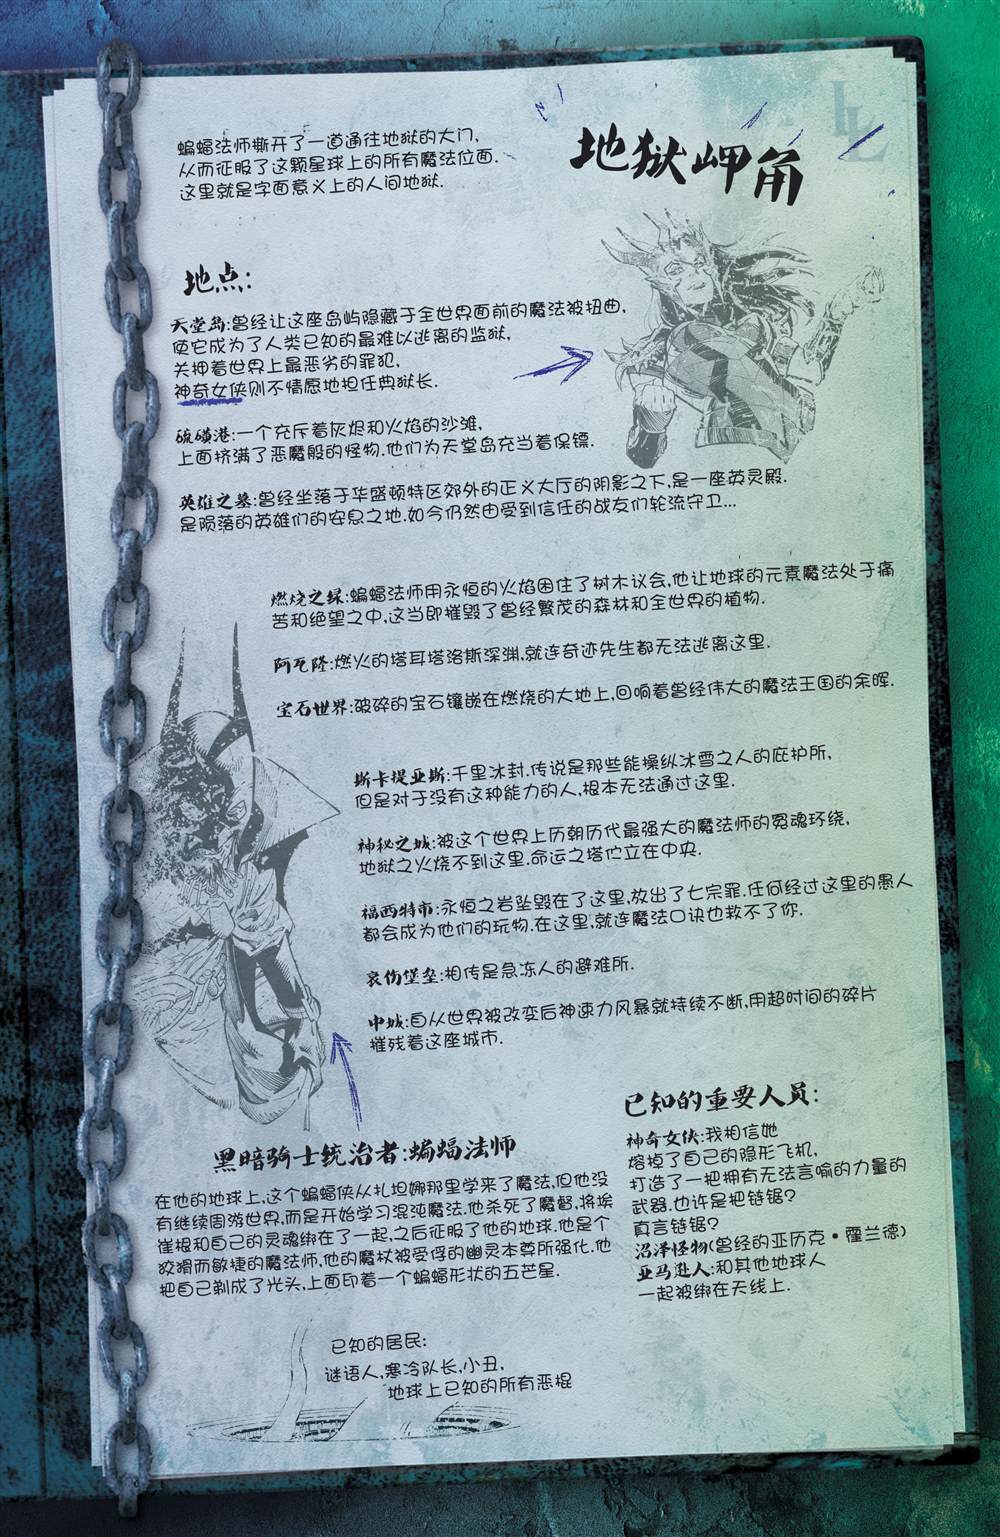 LL
地狱岬角
蝙蝠法师撕开了一道通往地狱的大门,
从而征服了这颗星球上的所有魔法位面.
这里就是字面意义上的人间地狱.
地点:
天堂岛:曾经让这座岛屿隐藏于全世界面前的魔法被扭曲,
使它成为了人类已知的最难以逃离的监狱,
关押着世界上最恶劣的罪犯,
神奇女侠则不情愿地担任典狱长.
硫磺港:一个充斥着灰烬和火焰的沙滩,
上面挤满了恶魔般的怪物.他们为天堂岛充当着保镖.
英雄之墓:曾经坐落于华盛顿特区郊外的正义大厅的阴影之下,是一座英灵殿.
是陨落的英雄们的安息之地.如今仍然由受到信任的战友们轮流守卫...
燃烧之绿:蝙蝠法师用永恒的火焰困住了树木议会,他让地球的元素魔法处于痛
苦和绝望之中,这当即摧毁了曾经繁茂的森林和全世界的植物.
阿瓦隆:燃火的塔耳塔洛斯深渊.就连奇迹先生都无法逃离这里.
宝石世界:破碎的宝石镶嵌在燃烧的大地上,回响着曾经伟大的魔法王国的余晖.
斯卡提亚斯:千里冰封.传说是那些能操纵冰雪之人的庇护所,
但是对于没有这种能力的人,根本无法通过这里.
神秘之城:被这个世界上历朝历代最强大的魔法师的冤魂环绕,
地狱之火烧不到这里.命运之塔伫立在中央.
福西特市:永恒之岩坠毁在了这里,放出了七宗罪.任何经过这里的愚人
都会成为他们的玩物.在这里,就连魔法口诀也救不了你.
哀伤堡垒:相传是急冻人的避难所.
中城:自从世界被改变后神速力风暴就持续不断,用超时间的碎片
摧残着这座城市.
黑暗骑士统治者:蝙蝠法师
在他的地球上,这个蝙蝠侠从扎坦娜那里学来了魔法,但他没
有继续周游世界,而是开始学习混沌魔法.他杀死了魔督,将埃
崔根和自己的灵魂绑在了一起,之后征服了他的地球.他是个
狡猾而敏捷的魔法师,他的魔杖被受俘的幽灵本尊所强化.他
把自己剃成了光头,上面印着一个蝙蝠形状的五芒星.
已知的居民:
谜语人,寒冷队长,小丑,
地球上已知的所有恶棍
已知的重要人员:
神奇女侠:我相信她
熔掉了自己的隐形飞机,
打造了一把拥有无法言喻的力量的
武器.也许是把链锯?
真言链锯?
沼泽怪物(曾经的亚历克·霍兰德)
亚马逊人:和其他地球人
一起被绑在天线上.